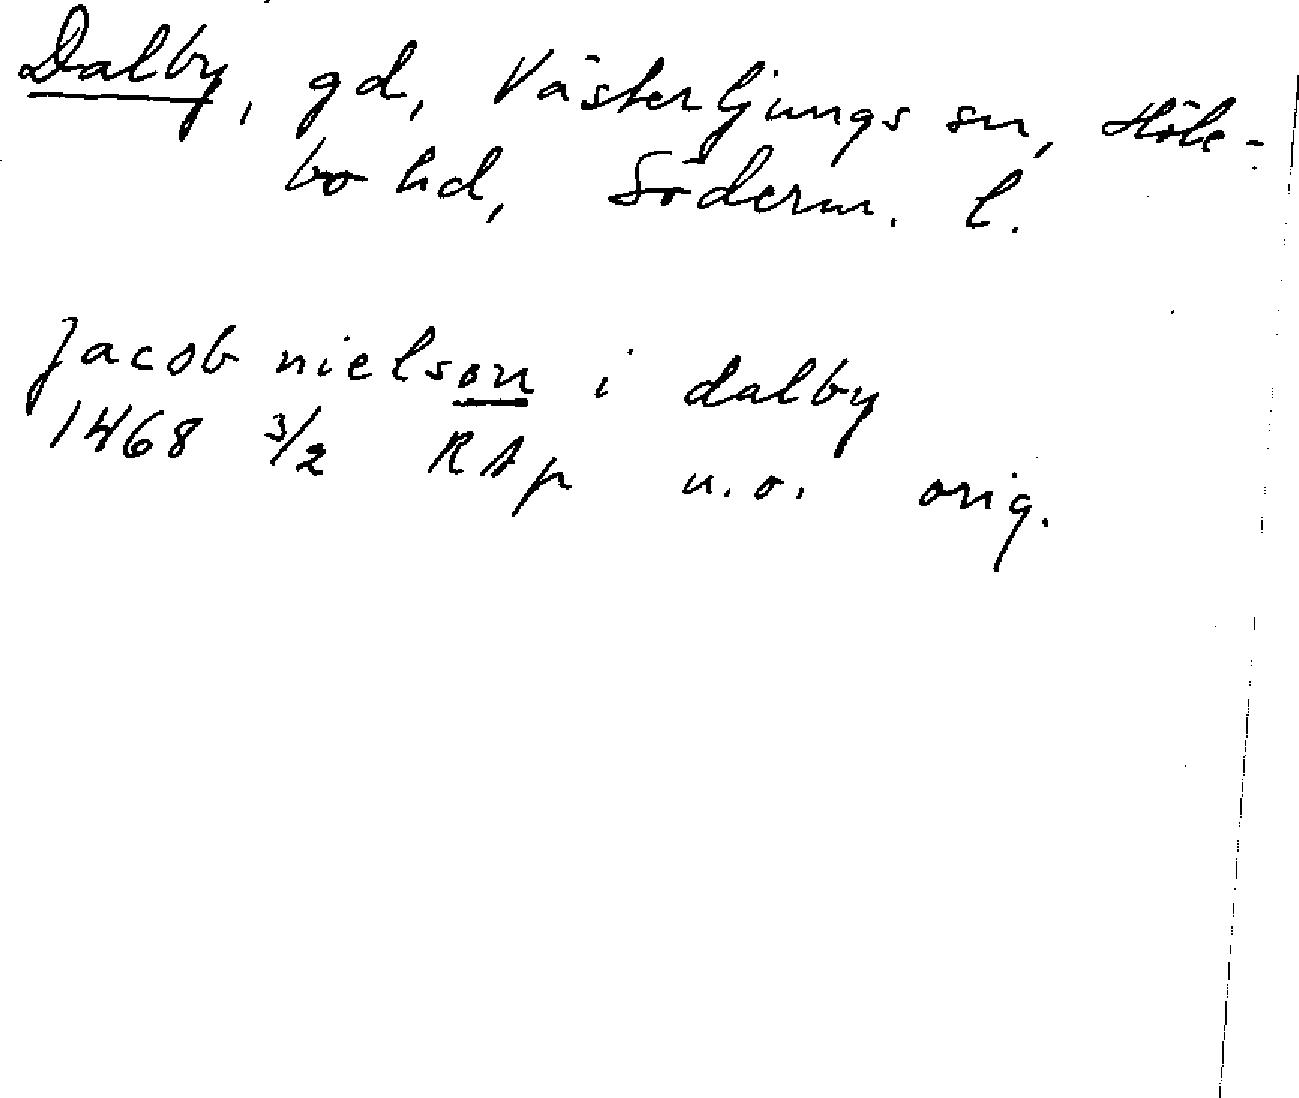 Dalby, gd, Västerljungs sn, Höle-
bo hd, Söderm. l.
Jacob nielson i dalby
1468 3/2 RAp u.o. orig.